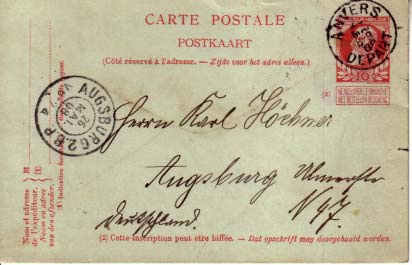 CARTE POSTALE
POSTKAART
(Côté réservé à l'adresse. — Zijde voor het adres alleen.)
ANVERS
DEPART
10
NE PAS LIVRER LE DIMANCHE
NIET BESTELLEN OP ZONDAG
(2)
AUGSBURG 2.B.P.
26
MAI
08
Herrn Karl Höchner
Augsburg
N 47.
Deutschland.
(2) Cette inscription peut être biffée. — Dat opschrift may doorgehaald worden.
M (1)
Nom et adresse
de l'expéditeur.
Naam en adres
van den afzender.
(1) Indication